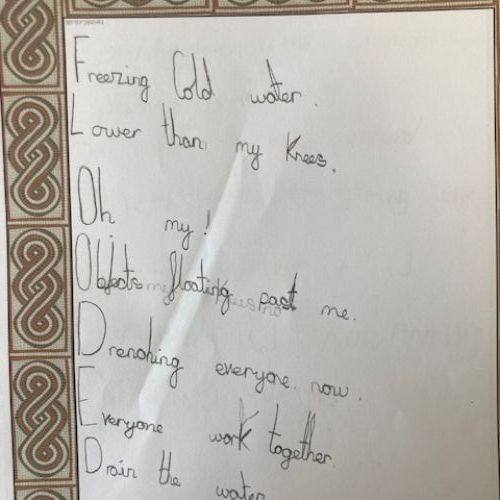 Freezing Cold water.
Lower than my knees.
Oh my!
Objects floating past me.
Drenching everyone now.
Everyone work together.
Drain the water